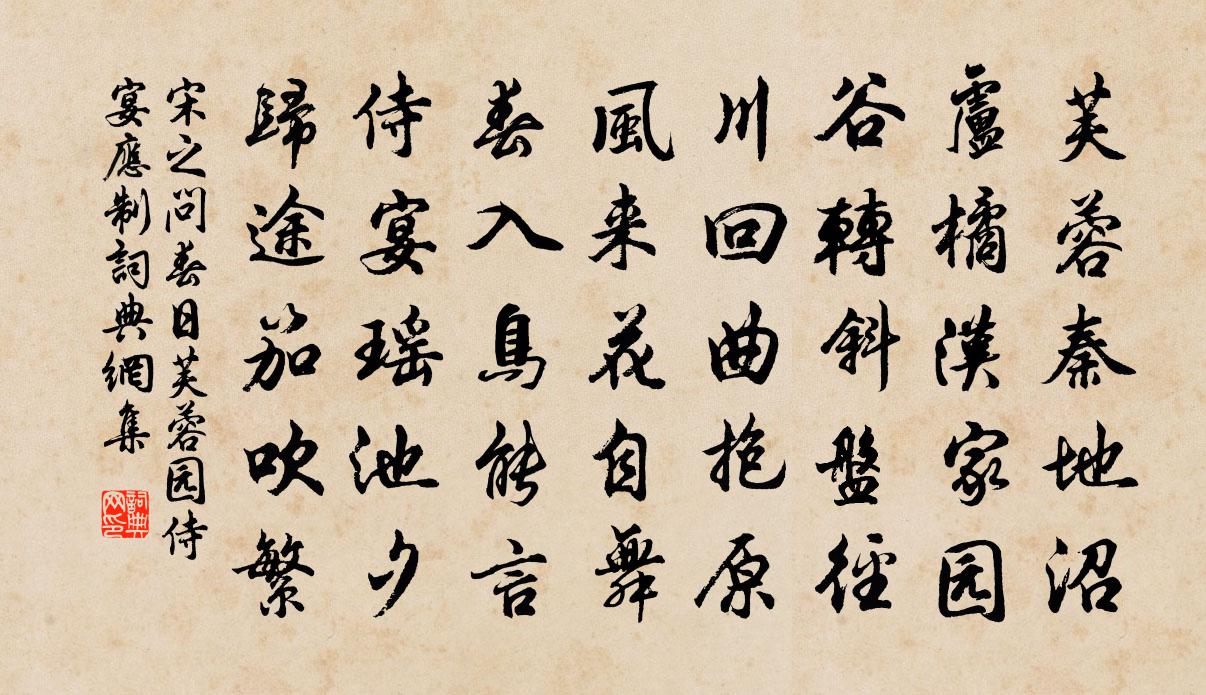 芙蓉秦地沼
盧橘漢家园
谷轉斜盤徑
川回曲抱原
風来花自舞
春入鳥能言
侍宴瑶池夕
歸途笳吹繁
宋之问春日芙蓉园侍
宴應制詞典網集
詞典
网印